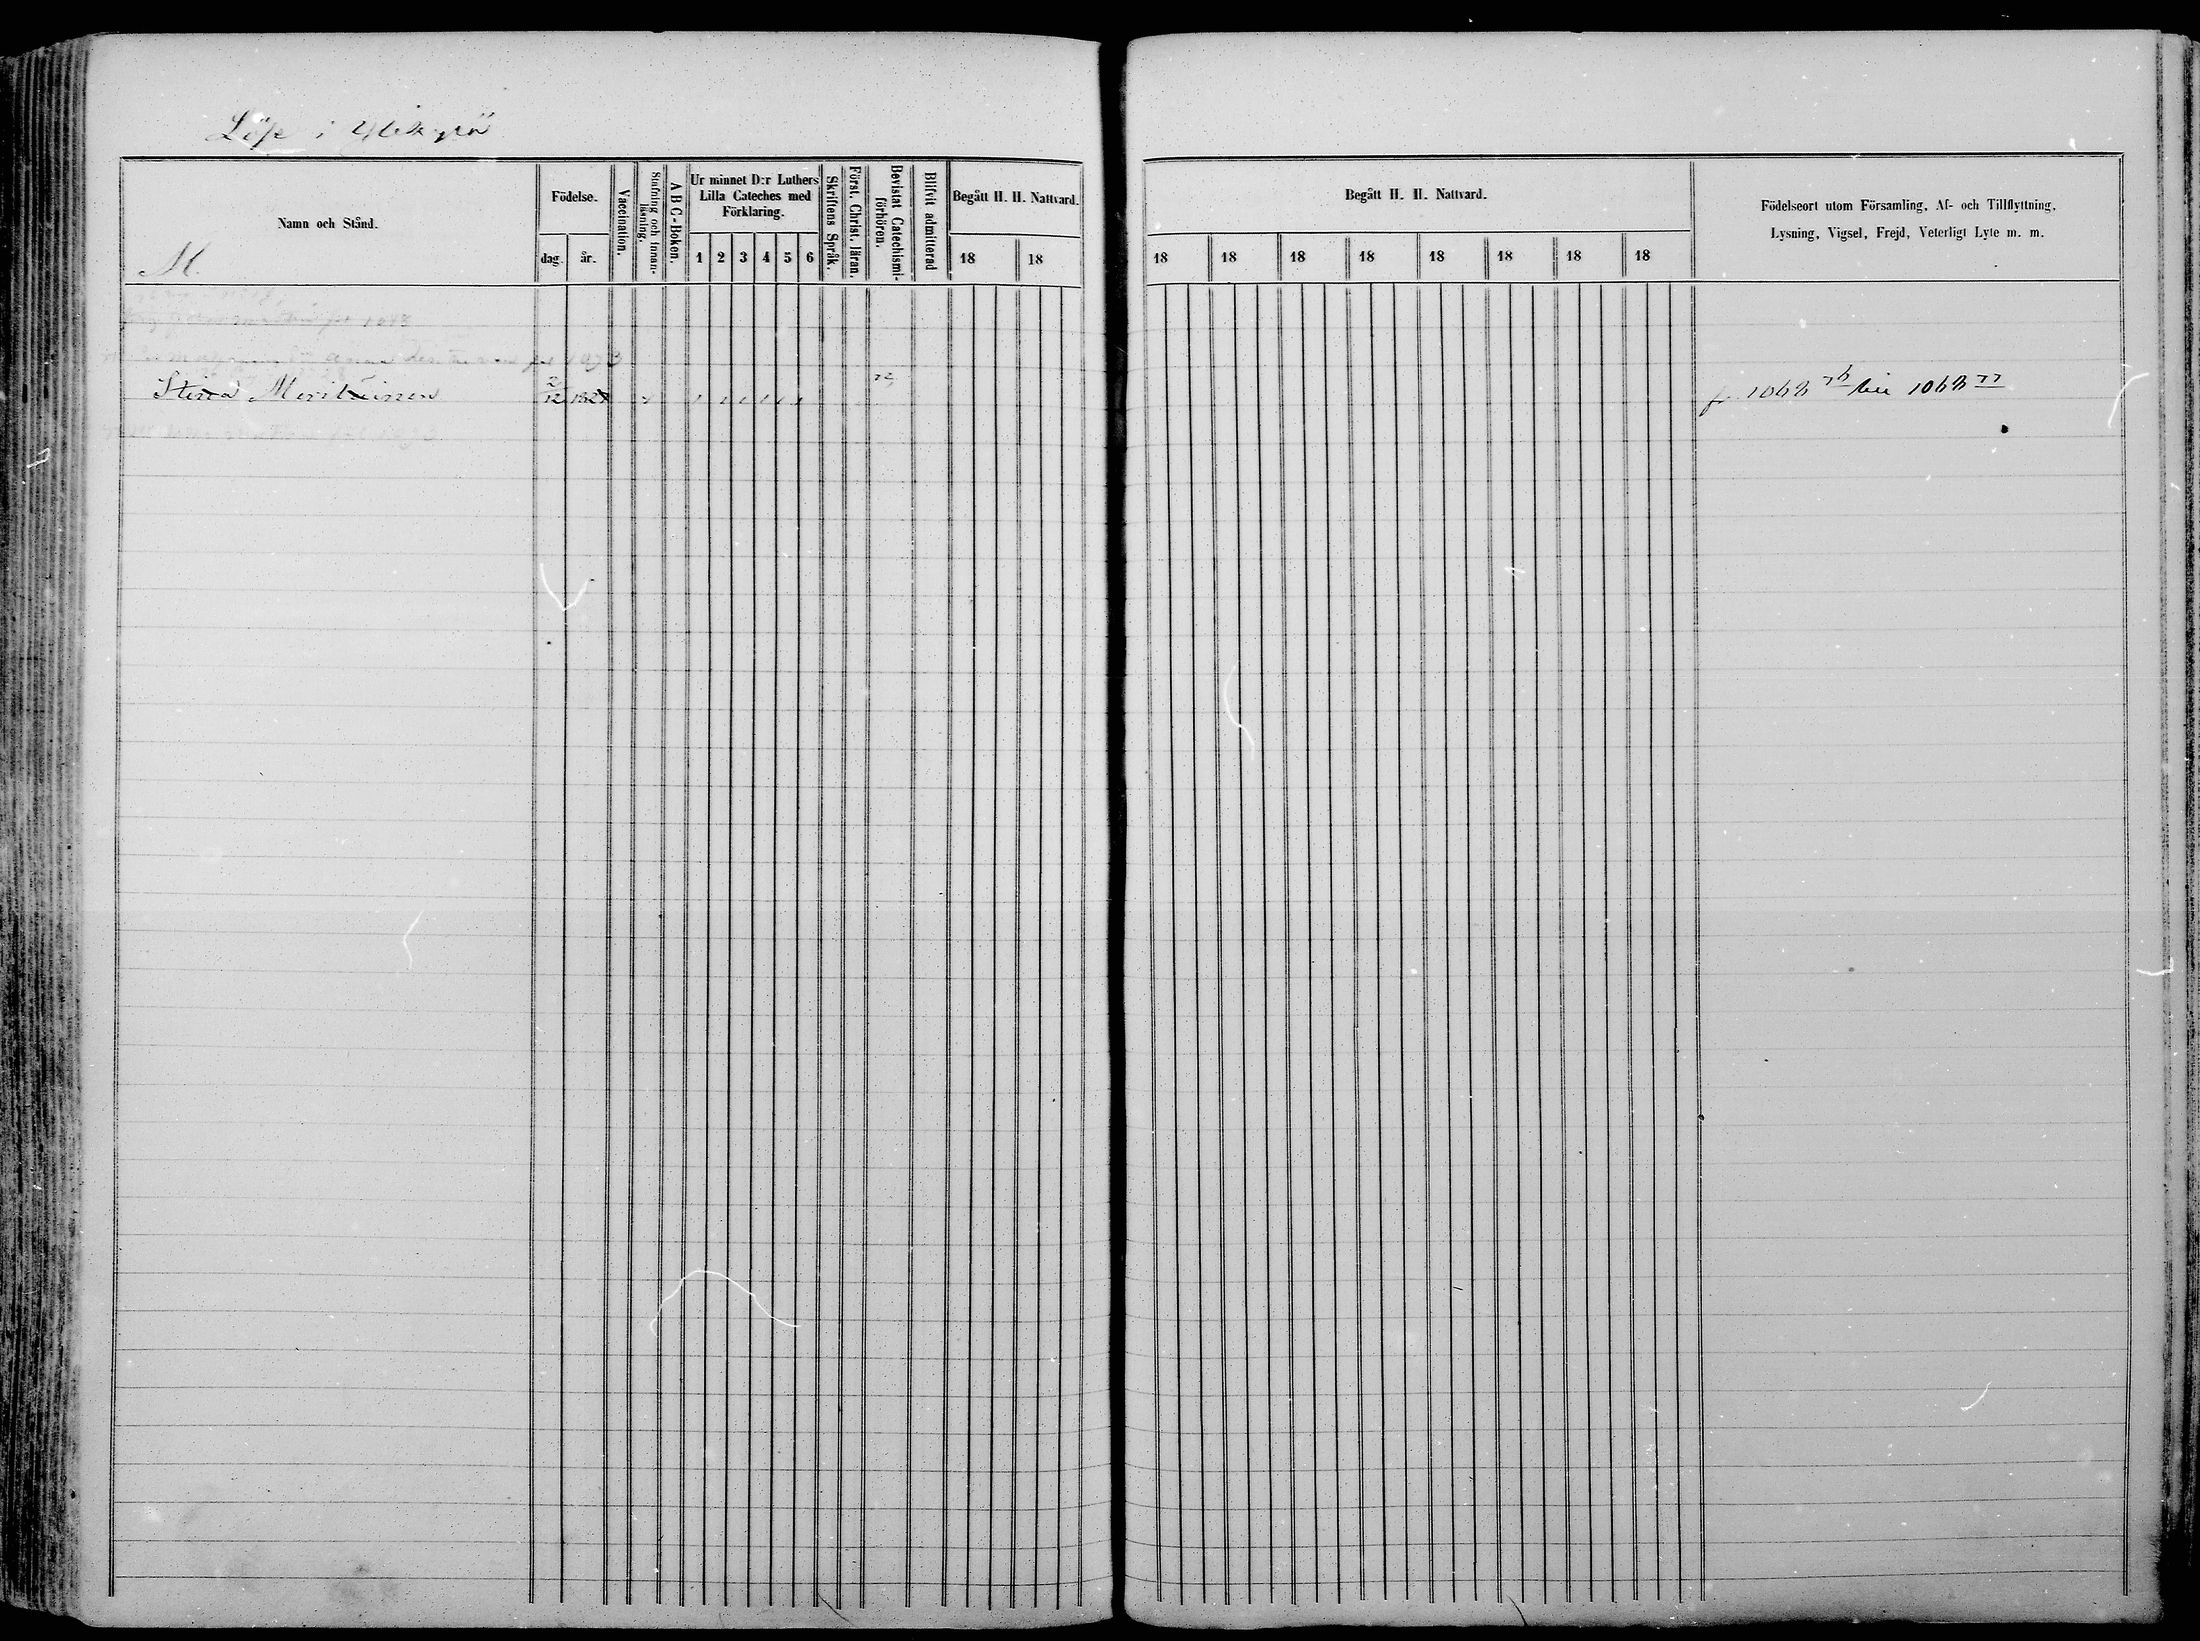 Löse i Ylikylä
Namn och Stånd.
M.
Födelse.
dag.
år.
Vaccination.
Stafning och innan-
läsning.
A B C-Boken.
Ur minnet D:r Luthers
Lilla Cateches med
Förklaring.
1 2 3 4 5 6
Skriftens Språk.
Först. Christ. läran.
Bevistat Catechismi-
förhören.
Blifvit admitterad
Begått H. H. Nattvard.
18 18
Begått H. H. Nattvard.
18 18 18 18 18 18 18 18
Födelseort utom Församling, Af- och Tillflyttning,
Lysning, Vigsel, Frejd, Veterligt Lyte m. m.
Stina Meriläinen 2/12 1827
fr 1068 76 till 1068 77